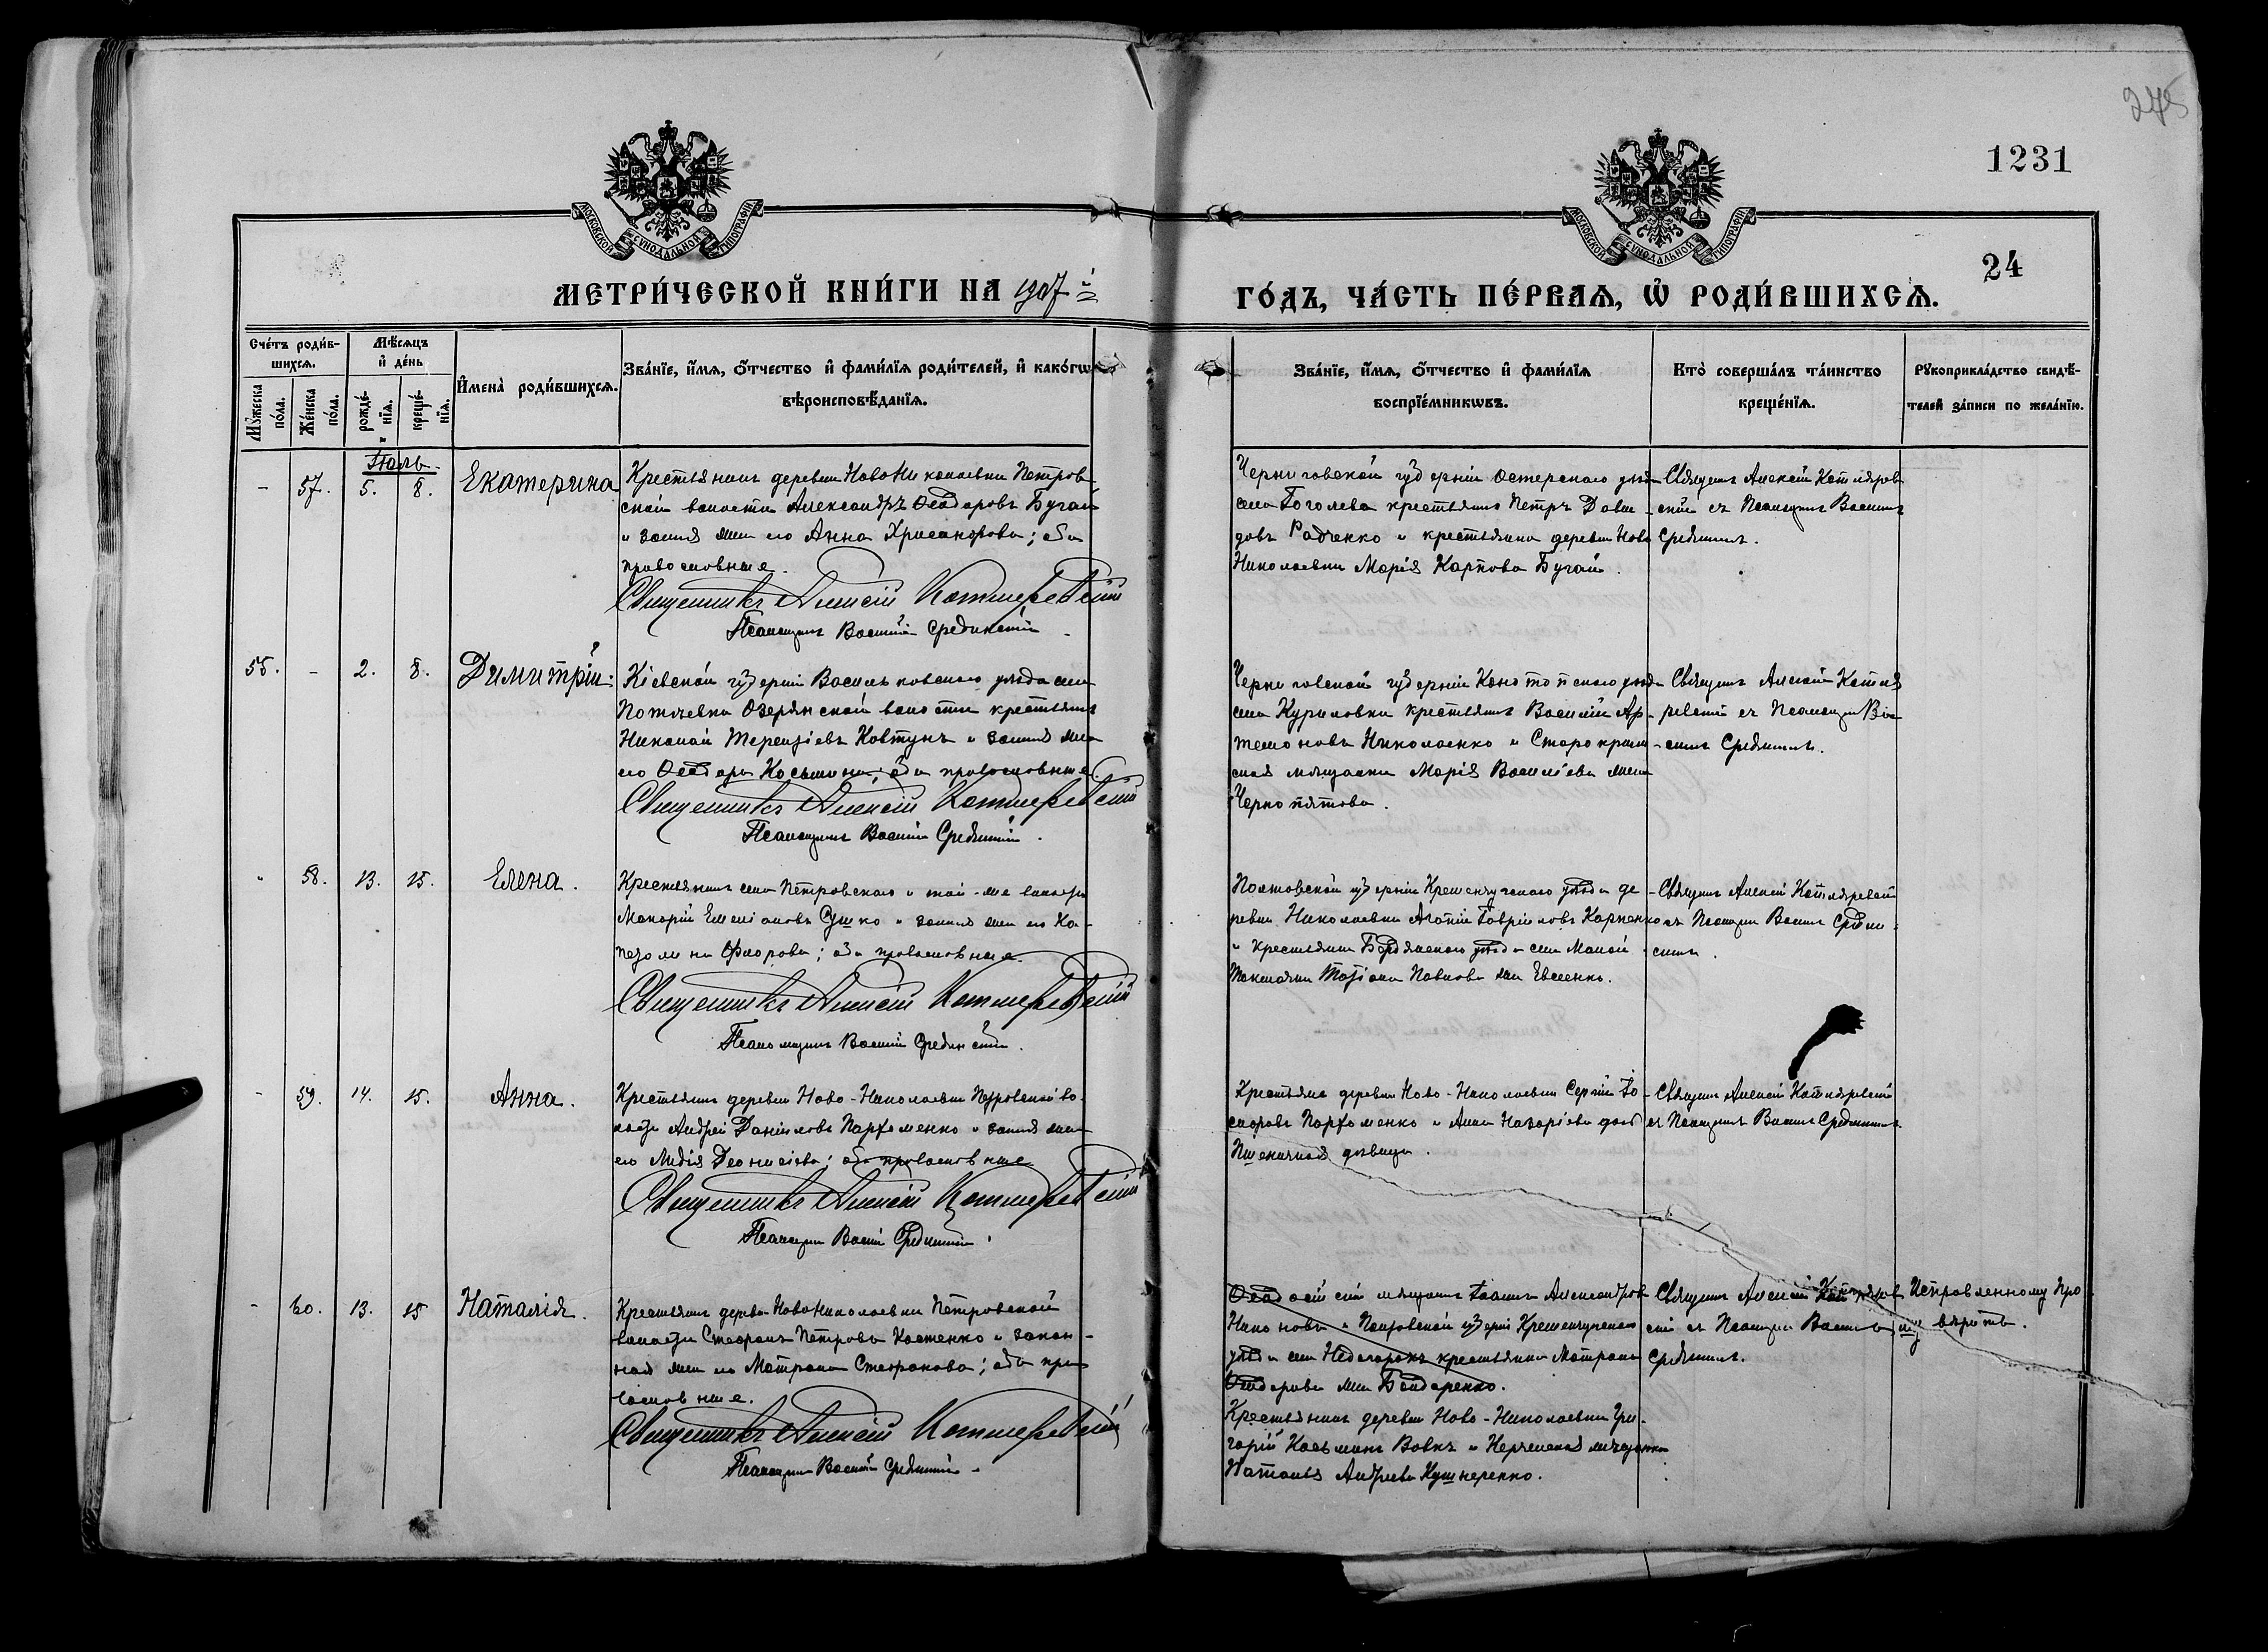 275
1231
24
МОСКОВСКОЙ СѴНОДАЛЬНОЙ ТИПОГРАФІИ
МОСКОВСКОЙ СѴНОДАЛЬНОЙ ТИПОГРАФІИ
МЕТРИ́ЧЕСКОЙ КНИ́ГИ НА 1907й
ГО́ДЪ, ЧА́СТЬ ПЕ́РВАѦ, Ѽ РОДИ́ВШИХСѦ.
Сче́тъ роди́в-
шихсѧ.
Мꙋжеска по́ла.
Же́нска по́ла.
Мѣ́сѧцъ
и҆ де́нь
рожде́-
нїѧ.
креще́-
нїѧ.
И҆мена̀ роди́вшихсѧ.
Зва́нїе, и҆́мѧ, о҆́тчество и҆ фами́лїѧ роди́телей, и҆ како́гѡ
вѣроисповѣ́данїѧ.
Зва́нїе, и҆́мѧ, о҆́тчество и҆ фами́лїѧ
воспрїе́мникѡвъ.
Кто̀ соверша́лъ та́инство
креще́нїѧ.
Рꙋкоприкла́дство свидѣ́-
телей за́писи по жела́нїю.
Іюль.
- 57. 5. 8. Екатерина
Крестьянинъ деревни Ново Николаевки Петров
ской волости Александръ Ѳеодоровъ Бугай
и законная жена его Анна Хрисанфова; оба
православные.
Священникъ Алексій Котляревскій
Псаломщикъ Василій Срединскій
Черниговской губерніи Остерскаго уѣзда
села Гоголева крестьянинъ Петръ Дави
довъ Радченко и крестьянка деревни Ново
Николаевки Марія Карпова Бугай.
Священникъ Алексій Котляров
скій съ Псаломщик Василіем
Срединскимъ.
55. - 2. 8. Димитрій.
Кіевской губерніи Васильковскаго уѣзда села
Поточевка Озерянской волости крестьянинъ
Николай Терентіевъ Ковтунъ и законная жена
его Ѳеодора Косьмина; оба православные.
Священникъ Алексій Котляревскій
Псаломщикъ Василій Срединскій.
Черниговской губерніи Конотопскаго уѣзда
села Куриловки крестьянинъ Василій Ар-
темоновъ Николаенко и Старокрым
ская мѣщанка Марія Василіева жена
Чернопятова.
Священникъ Алексій Котля
ревскій съ Псаломщик Васи
ліемъ Срединскимъ.
58. 13. 15. Елена.
Крестьянинъ села Петровскаго и той-же волости
Макарій Емеліановъ Сушко и законная жена его Ка-
петолина Флорова; оба православные.
Священникъ Алексій Котляревскій
Псаломщикъ Василій Срединскій.
Полтавской губерніи Кременчугскаго уѣзда де
ревни Николаевки Агапій Гавріиловъ Карпенко
и крестьянка Бердянскаго уѣзда села Малой
Токмачки Татіана Павлова жена Евсеенко.
Священникъ Алексій Котляревскій
съ Псаломщик Василіем Средин
скимъ.
- 59. 14. 15. Анна.
Крестьянинъ деревни Ново-Николаевки Петровской во-
лости Андрей Даніиловъ Парфоменко и законная жена
его Лидія Деонисіева; оба православные
Священникъ Алексій Котляревскій
Псаломщикъ Василій Срединскій.
Крестьяне деревни Ново-Николаевки Сергій
Парфоменко и Анна Назаріева дочь
Пшеничная дѣвица.
Священникъ Алексій Котляревскій
съ Псаломщикомъ Василіемъ Срединскимъ
- 60. 13. 15 Наталія.
Крестьянинъ деревни Ново Николаевки Петровской
волости Стефанъ Петровъ Костенко и закон-
ная жена его Матрона Стефанова; оба пра
вославные.
Священникъ Алексій Котляревскій
Псаломщикъ Василій Срединскій.
Ѳеодосійскій мѣщанинъ Іоаннъ Александровъ
Никоновъ и Полтавской губерніи Кременчугскаго
уѣзда села Недогарокъ крестьянка Матрона
Ѳеодорова жена Бондаренко.
Крестьянинъ деревни Ново-Николаевки Гри-
горій Косьминъ Вовкъ и Керченская мѣщанка
Наталья Андреева Кушнеренко.
Священникъ Алексій Котляров
скій съ Псаломщик Василіемъ
Срединскимъ.
Исправленному
вѣрить.